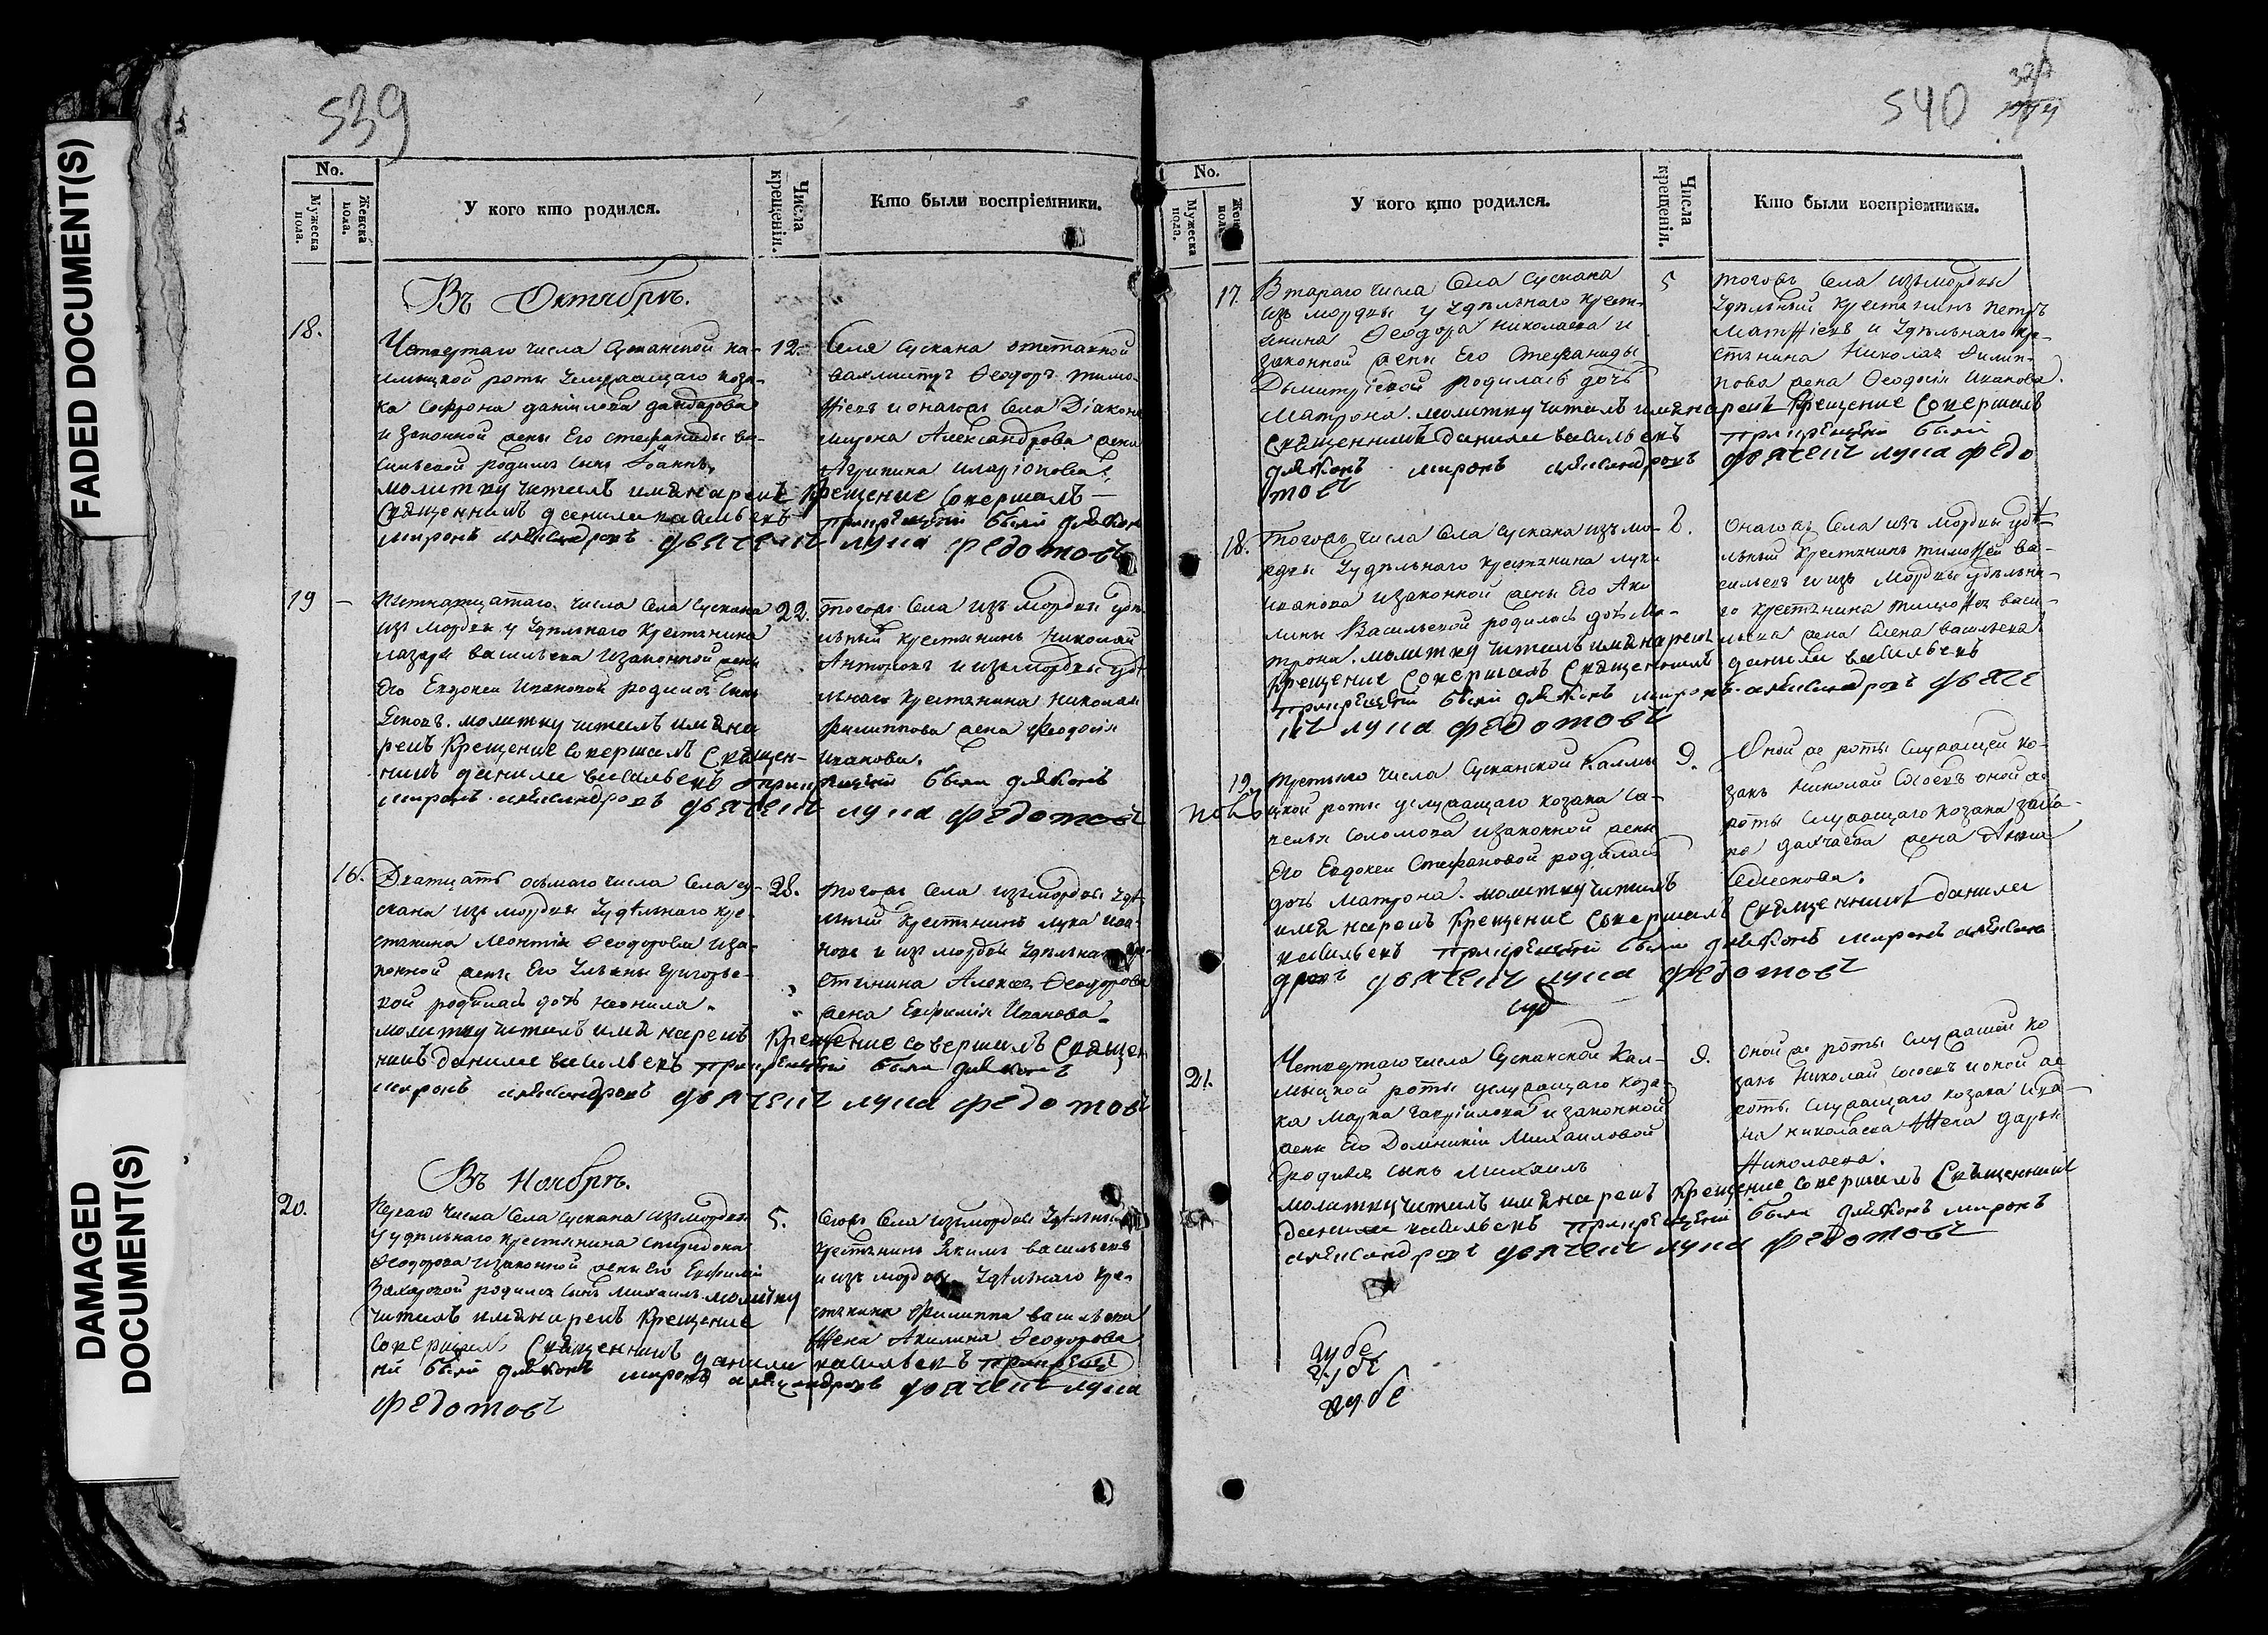 FADED DOCUMENT(S)
DAMAGED
DOCUMENT(S)
539
No.
Мужеска пола.
Женска пола.
У кого кто родился.
Числа крещенія.
Кто были воспріемники.
Въ Октябрѣ.
18.
Четвертаго числа Сусканской ка-
лмыцкой роты служащаго коза-
ка Софрона Даніилова
и законной жены его Стефаниды Ва-
сильевой родился сынъ Іоаннъ.
молитву читалъ имя нарекъ крещение совершалъ
священникъ данила васильевъ при крещении были дьяконъ
миронъ александровъ дьячекъ лука федотовъ
12.
Села Сускана отставной
вахмистръ Ѳеодоръ Тимо-
ѳіевъ и онагожъ села Діакона
Мирона Александрова жена
Агрипина Иларіонова.
19
Пятнатцатаго числа села Сускана
изъ мордвы у удѣльнаго крестьянина
Лазаря Васильева и законной жены
его Евдокеи Ивановой родился сынъ
молитву читалъ имя на
рекъ крещение совершалъ священ-
никъ данила васильевъ при крещении были дьяконъ
миронъ александровъ дьячекъ лука федотовъ
22.
тогожъ села изъ мордвы удѣ-
льный крестьянинъ Николай
Антоновъ и изъ мордвы удѣ-
льнаго крестьянина Николая
Филиппова жена Ѳеодосія
Иванова.
16.
Дватцать осьмаго числа села Су-
скана изъ мордвы у удѣльнаго кре-
стьянина Леонтія Ѳеодорова и за-
конной жены его Ульяны Григорье-
вой родилась дочь Неонила.
молитву читалъ имя нарекъ крещение совершалъ священ
никъ данила васильевъ при крещении были дьяконъ
миронъ александровъ дьячекъ лука федотовъ
28.
тогожъ села изъ мордвы удѣ-
льный крестьянинъ Лука Ива-
новъ и изъ мордвы удѣльнаго кре-
стьянина Алексея Ѳеодорова
жена Евфимія Иванова.
Въ Ноябрѣ.
20.
Перваго числа села Сускана изъ мордвы
у удѣльнаго крестьянина Спиридона
Ѳеодорова и законной жены его Евфиміи
Захаровой родился сынъ Михаилъ. молитву
читалъ имя нарекъ крещение
совершалъ священникъ данила васильевъ при креще
нии были дьяконъ миронъ александровъ дьячекъ лука
федотовъ
5.
Сегожъ села изъ мордвы удѣльный
крестьянинъ Якимъ Васильевъ
и изъ мордвы удѣльнаго кре-
стьянина Филиппа Васильева
Жена Акилина Ѳеодорова
540
No.
Мужеска пола.
У кого кто родился.
Числа крещенія.
Кто были воспріемники.
17.
Втараго числа села Сускана
изъ мордвы у удѣльнаго крестья-
янина Ѳеодора Николаева и
законной жены его Стефаниды
Дьмитріевой родилась дочь
Матрона. молитву читалъ имя нарекъ крещение совершалъ
священникъ данила васильевъ при крещении были
дьяконъ миронъ александровъ дьячекъ лука федо
товъ
5
тогожъ села изъ мордвы
удѣльный крестьянинъ Петръ
Матѳіевъ и удѣльнаго кре-
стьянина Николая Филип-
пова жена Ѳеодосія Иванова.
18.
Тогожъ числа села Сускана изъ мо-
рдвы у удѣльнаго крестьянина Луки
Иванова и законной жены его Аки-
лины Васильевой родилась дочь Ма-
трона. молитву читалъ имя нарекъ
крещение совершалъ священникъ данила васильевъ
при крещении были дьяконъ миронъ александровъ дьяче
къ лука федотовъ
онагожъ села изъ мордвы удѣ-
льный крестьянинъ Тимоѳей Ва-
сильевъ и изъ мордвы удѣльна-
го крестьянина Тимоѳея Васи-
льева жена Елена Васильева
19.
третьяго числа Сусканской Калмы
цкой роты у служащаго козака Са-
велья Соломова и законной жены
его Евдокеи Стефановой родилась
дочь Матрона. молитву читалъ
имя нарекъ крещение совершалъ священникъ данила
васильевъ при крещении были дьяконъ миронъ алексан
дровъ дьячекъ лука федотовъ
9.
Оной же роты служащей ко-
закъ Николай и оной же
роты служащаго козака
жена Анна
21.
Четвертаго числа Сусканской Кал-
мыцкой роты у служащаго коза-
ка Марка Гавріилова и законной
жены его Домникіи Михаиловой
родился сынъ Михаилъ
молитву читалъ имя нарекъ крещение совершалъ священникъ
данила васильевъ при крещении были дьяконъ миронъ
александровъ дьячекъ лука федотовъ
9.
оной же роты служащей ко
закъ Николай и оной же
роты служащаго козака Ива
на Николаева Жена Дарья
Николаева.